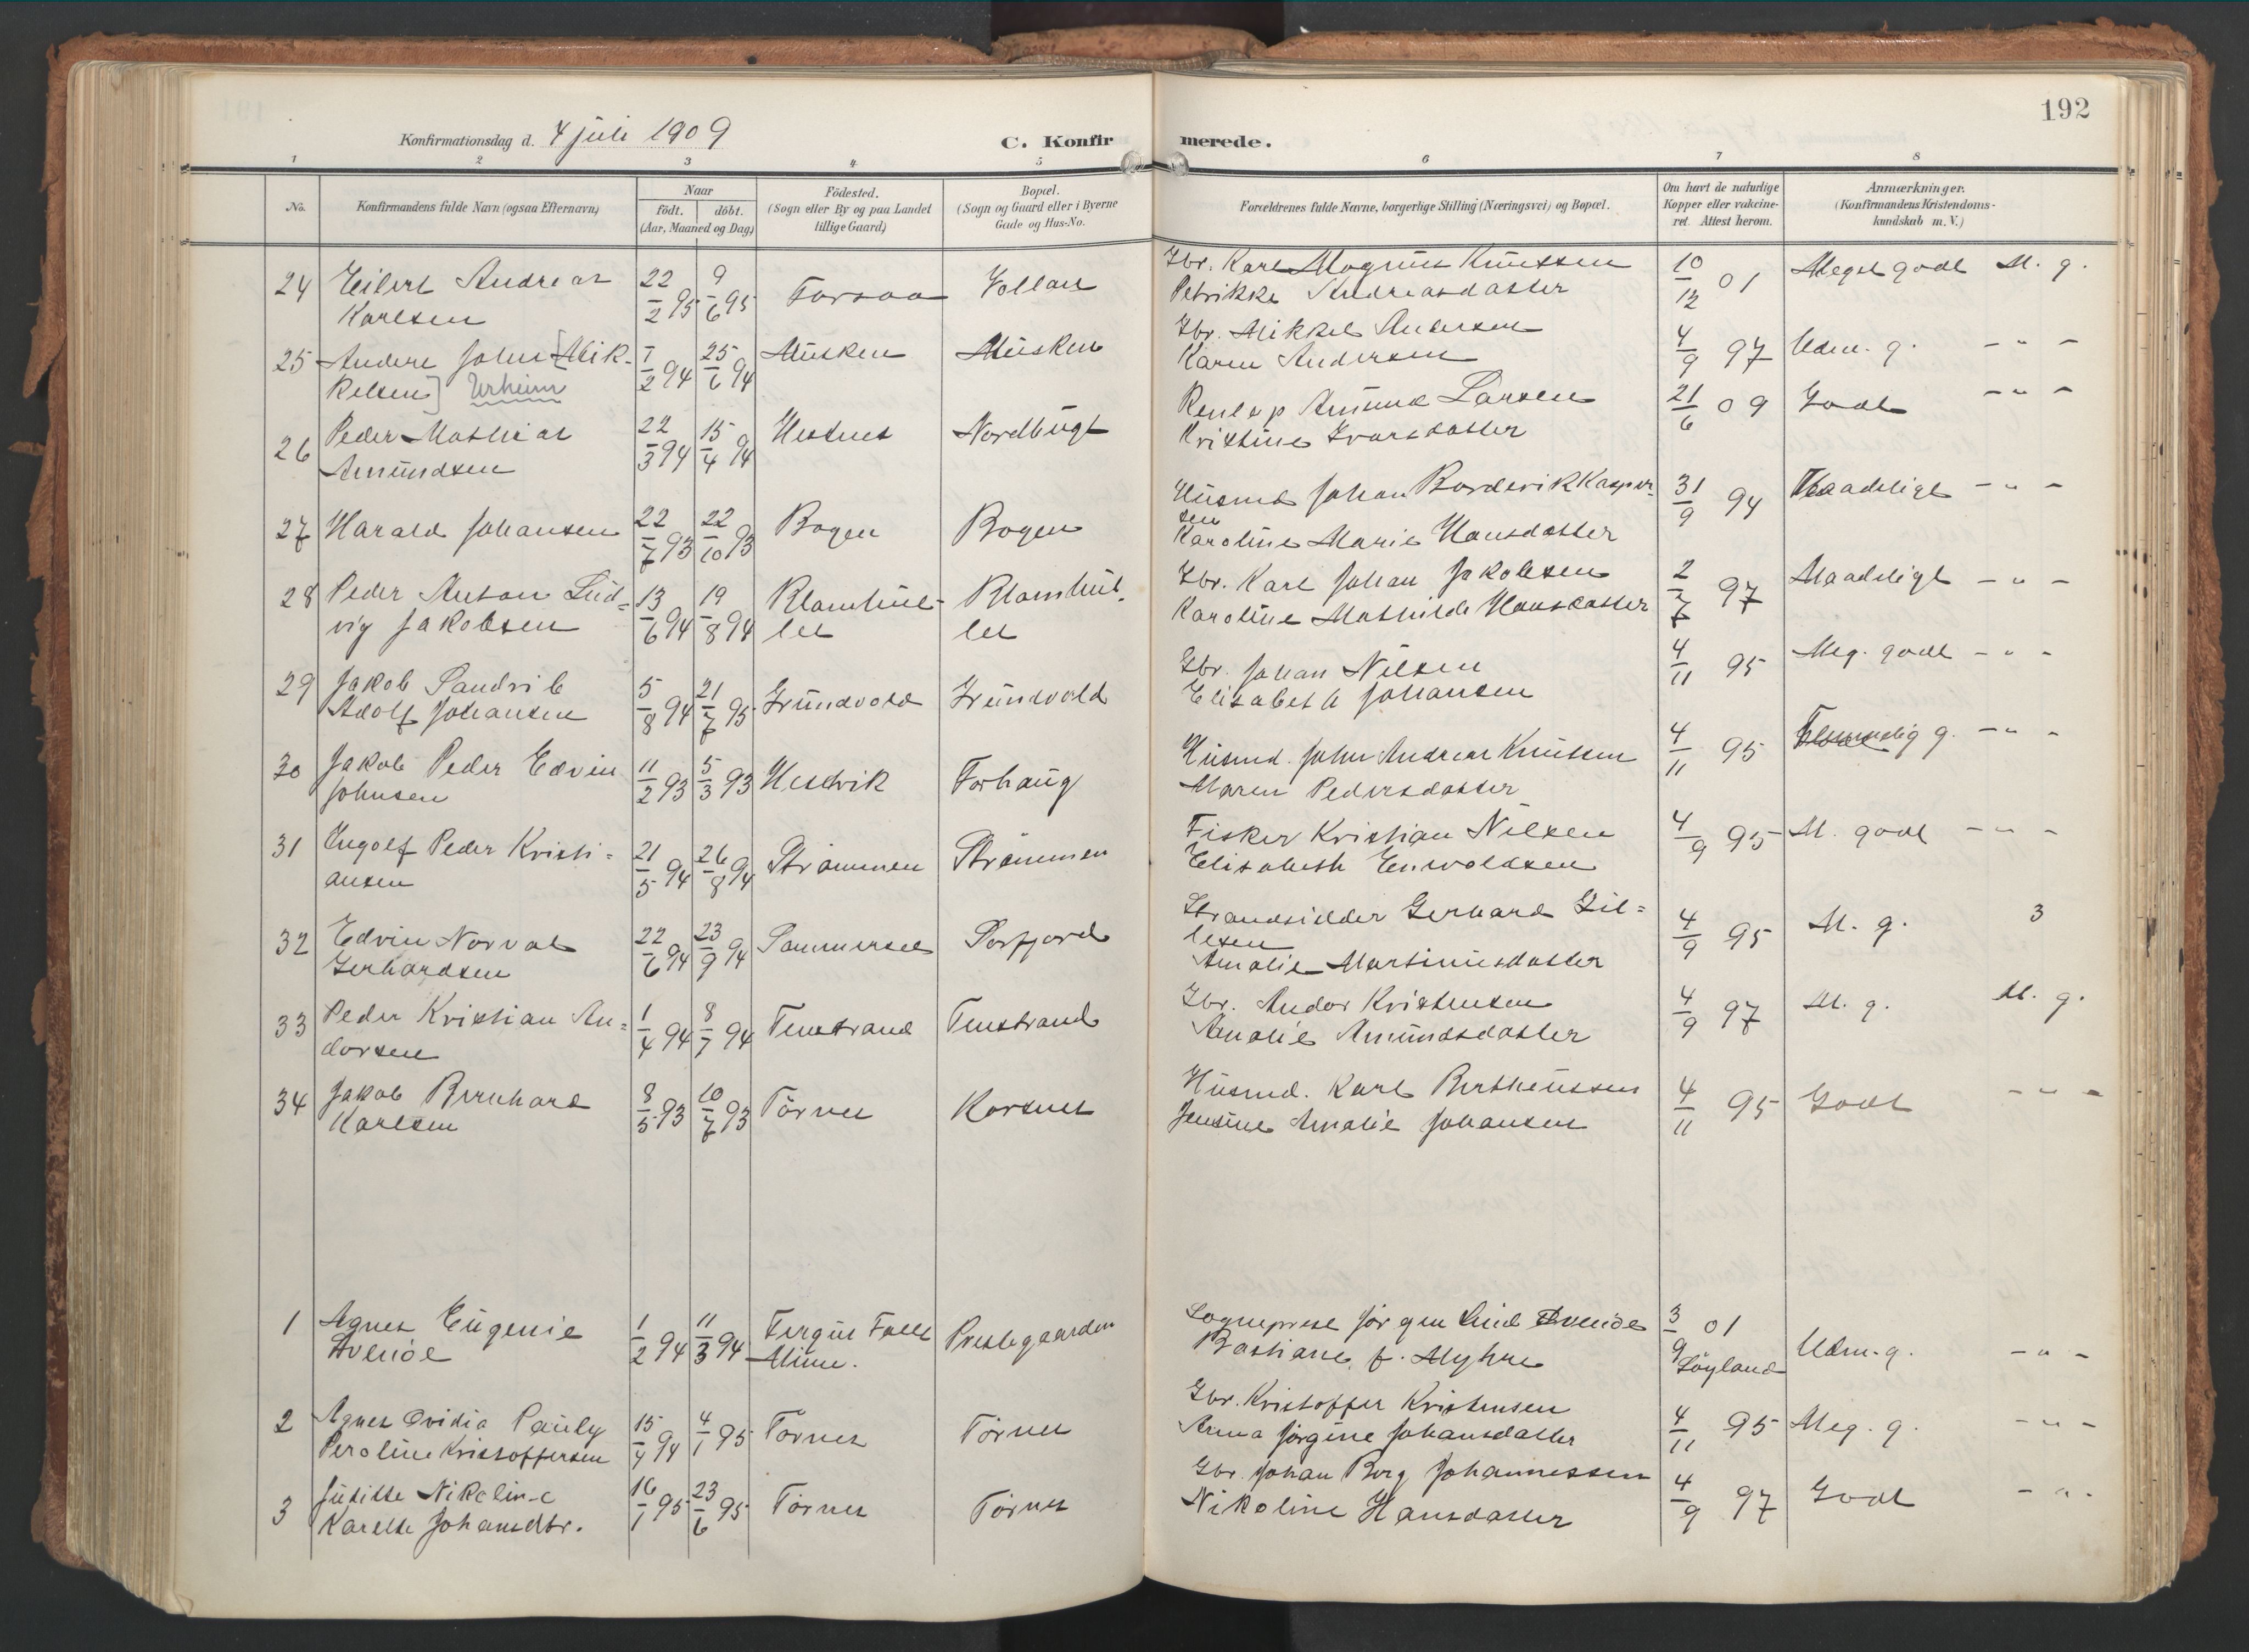 192
Konfirmationsdag d. 4 juli 1909
C. Konfir merede.
1 2 3 4 5 6 7 8
No.
Konfirmandens fulde Navn (ogsaa Efternavn)
Naar
födt. döbt.
(Aar, Maaned og Dag)
Födested.
(Sogn eller By og paa Landet
tillige Gaard)
Bopæl.
(Sogn og Gaard eller i Byerne
Gade og Hus-No.
Forældrenes fulde Navne, borgerlige Stilling (Næringsvei) og Bopæl.
Om havt de naturlige
Kopper eller vakcine-
ret. Attest herom.
Anmærkninger.
(Konfirmandens Kristendoms-
kundskab m. V.)
24 Eilert Andreas
Karlsen
22/2 95 9/6 95 Forsaa
Gbr. Karl Magnus Knutsen
Petrikke Andreasdatter
10/12 01 Meget godt M. g.
25 Anders John [Mik-
kelsen] Urheim
1/2 94 25/6 94 Musken Musken
Gbr. Mikkel Andersen
Karen Andersen
4/9 97 Udm. g. - " -
26 Peder Mathias
Amundsen
22/3 94 15/4 94 Hestnes Nordbugt
Amund Larsen
Kristine Ivarsdatter
21/6 09 Godt - " -
27 Harald Johansen
22/7 93 22/10 93 Bogen Bogen
Husmd Johan Kasper-
sen
Karoline Marie Hansdatter
31/9 94 Maadeligt - " -
28 Peder Anton Lud=
vig Jakobsen
13/6 94 19/8 94
Gbr. Karl Johan Jakobsen
Karoline Mathilde Hansdatter
2/7 97 Maadeligt - " -
29 Jakob Sandrib
Adolf Johansen
5/8 94 21/7 95 Grundvold Grundvold
Gbr. Johan Nilsen
Elisabeth Johansen
4/11 95 Meg. godt - " -
30 Jakob Peder Edvin
Johnsen
11/2 93 5/3 93 Hestvik Forhaug
Husmd. John Andreas Knutsen
Maren Pedersdatter
4/11 95 g. - " -
31 Ingolf Peder Kristi=
ansen
21/5 94 26/8 94 Strömmen Strömmen
Fisker Kristian Nilsen
Elisabeth Enwoldsen
4/9 95 M. godt - " -
32 Edvin Norval
Gerhardsen
22/6 94 23/9 94 Sommersel Sorfjord
Strandsidder Gerhard Zil=
lesen
Amalie Martinusdatter
4/9 95 M. g. 3
33 Peder Kristian An=
dorsen
1/4 94 8/7 94 Tenstrand Tenstrand
Gbr. Andor Kristensen
Amalie Amundsdatter
4/9 97 M. g. M. g.
34 Jakob Bernhard
Karlsen
8/5 93 10/7 93 Törnes Korsnes
Husmd. Karl Bertheussen
Jensine Amalie Johansen
4/11 95 Godt - " -
1 Agnes Eugenie
Svenöe
1/2 94 11/3 94 Fergus Falls
Minn.
Prestegaarden
Sogneprest Jörgen Lind Svenöe
Bastiane f. Myhre
3/9 01
Löyland
Udm. g. - " -
2 Agnes Ovidia Pauly
Peroline Kristoffersen
15/4 94 4/1 95 Törnes Törnes
Gbr. Kristoffer Kristensen
Anna Jörgine Johansdatter
4/11 95 Meg. g. - " -
3 Jusitte Nikoline
Karelte Johansdtr.
16/1 95 23/6 95 Törnes Törnes
Gbr. Johan Berg Johannessen
Nikoline Hansdatter
4/9 97 Godt - " -